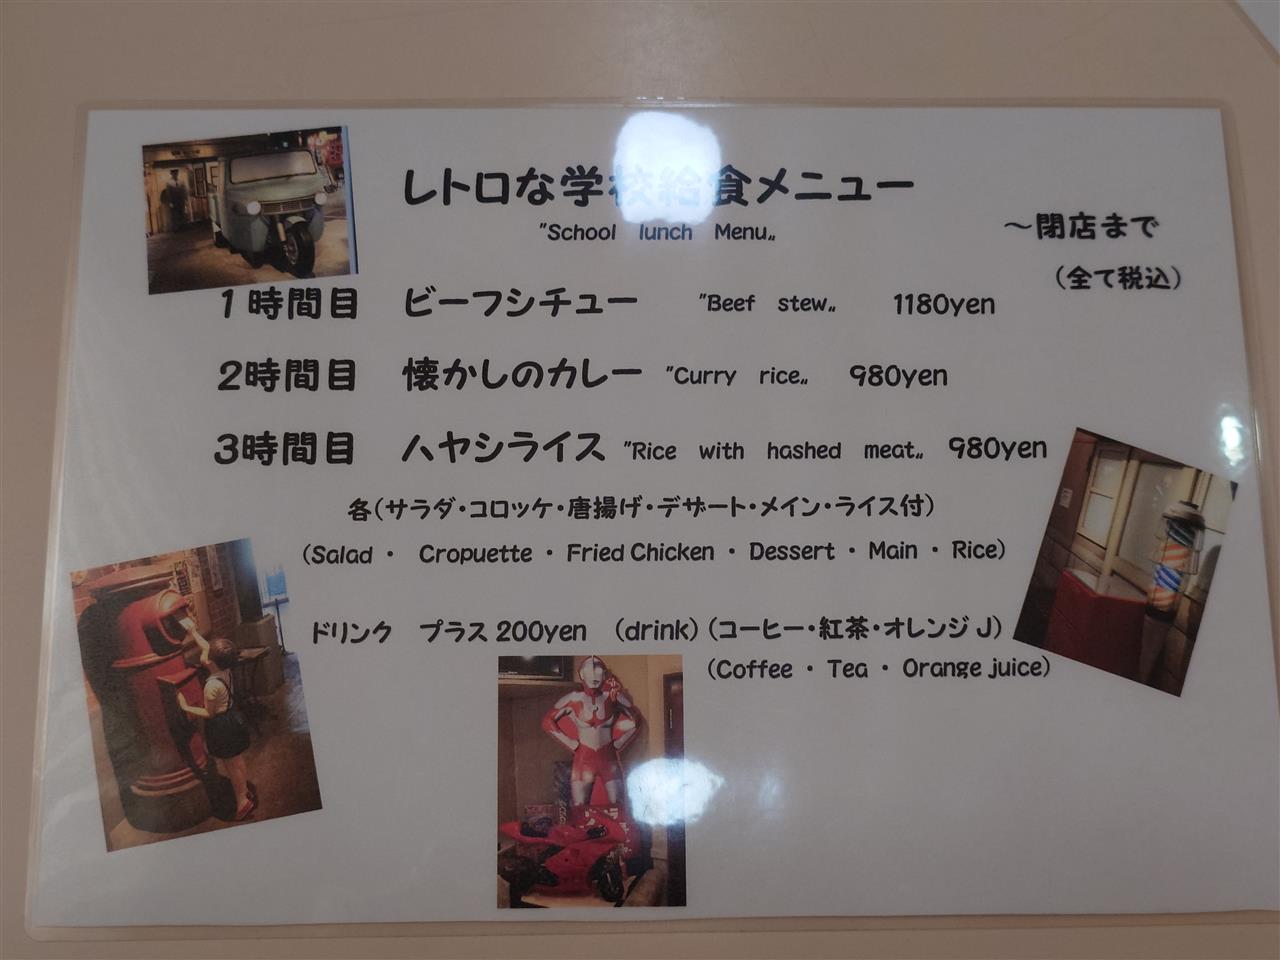 レトロな学校給食メニュー
"School lunch Menu„
～閉店まで
（全て税込）
１時間目 ビーフシチュー "Beef stew„ 1180yen
２時間目 懐かしのカレー "Curry rice„ 980yen
３時間目 ハヤシライス "Rice with hashed meat„ 980yen
各（サラダ・コロッケ・唐揚げ・デザート・メイン・ライス付）
（Salad ・ Cropuette ・ Fried Chicken ・ Dessert ・ Main ・ Rice）
ドリンク プラス 200yen （drink）（コーヒー・紅茶・オレンジ J）
（Coffee ・ Tea ・ Orange juice）